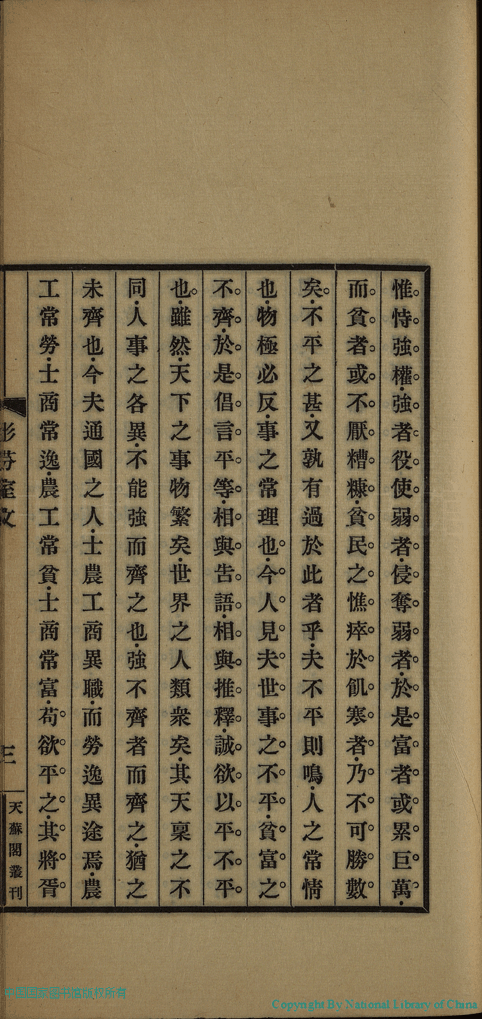 惟恃強權。強者役使弱者。侵奪弱者。於是富者或累巨萬。
而貧者或不厭糟糠。貧民之憔瘁於飢寒者。乃不可勝數
矣。不平之甚。又孰有過於此者乎。夫不平則鳴。人之常情
也。物極必反。事之常理也。今人見夫世事之不平。貧富之
不齊。於是倡言平等。相與告語。相與推釋。誠欲以平不平
也。雖然。天下之事物繁矣。世界之人類衆矣。其天稟之不
同。人事之各異。不能強而齊之也。強不齊者而齊之。猶之
未齊也。今夫通國之人。士農工商異職。而勞逸異途焉。農
工常勞。士商常逸。農工常貧。士商常富。苟欲平之。其將胥
芬室文
三
天蘇閣叢刊
Copyright By National Library of China